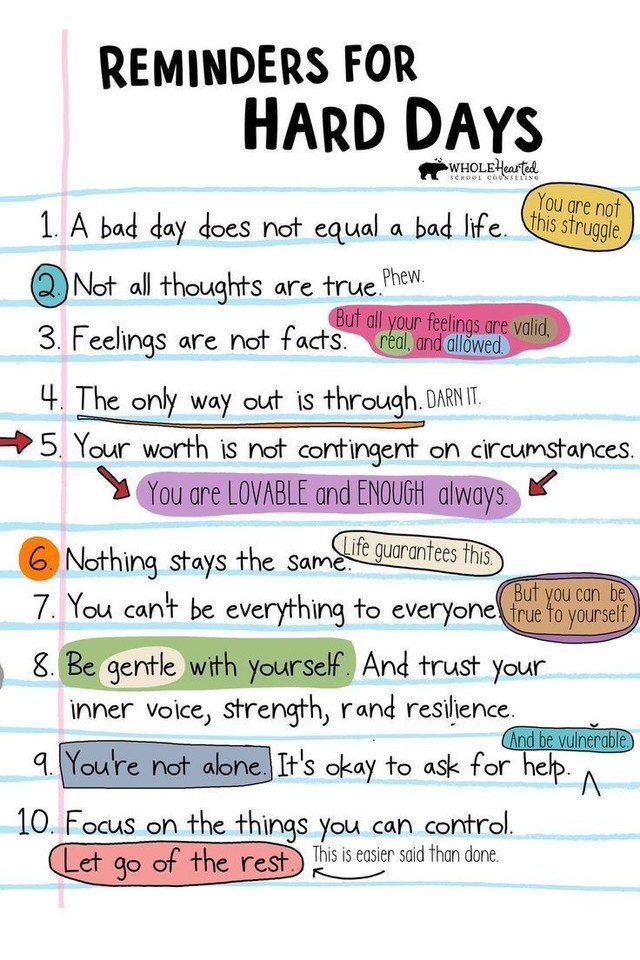 REMINDERS FOR
HARD DAYS
WHOLEHearted
SCHOOL COUNSELING
1. A bad day does not equal a bad life.
You are not
this struggle.
2. Not all thoughts are true. Phew.
3. Feelings are not facts.
But all your feelings are valid,
real, and allowed.
4. The only way out is through. DARN IT.
5. Your worth is not contingent on circumstances.
You are LOVABLE and ENOUGH always.
6. Nothing stays the same.
Life guarantees this.
7. You can't be everything to everyone.
But you can be
true to yourself.
8. Be gentle with yourself. And trust your
inner voice, strength, rand resilience.
And be vulnerable.
9. You're not alone. It's okay to ask for help.
10. Focus on the things you can control.
Let go of the rest.
This is easier said than done.